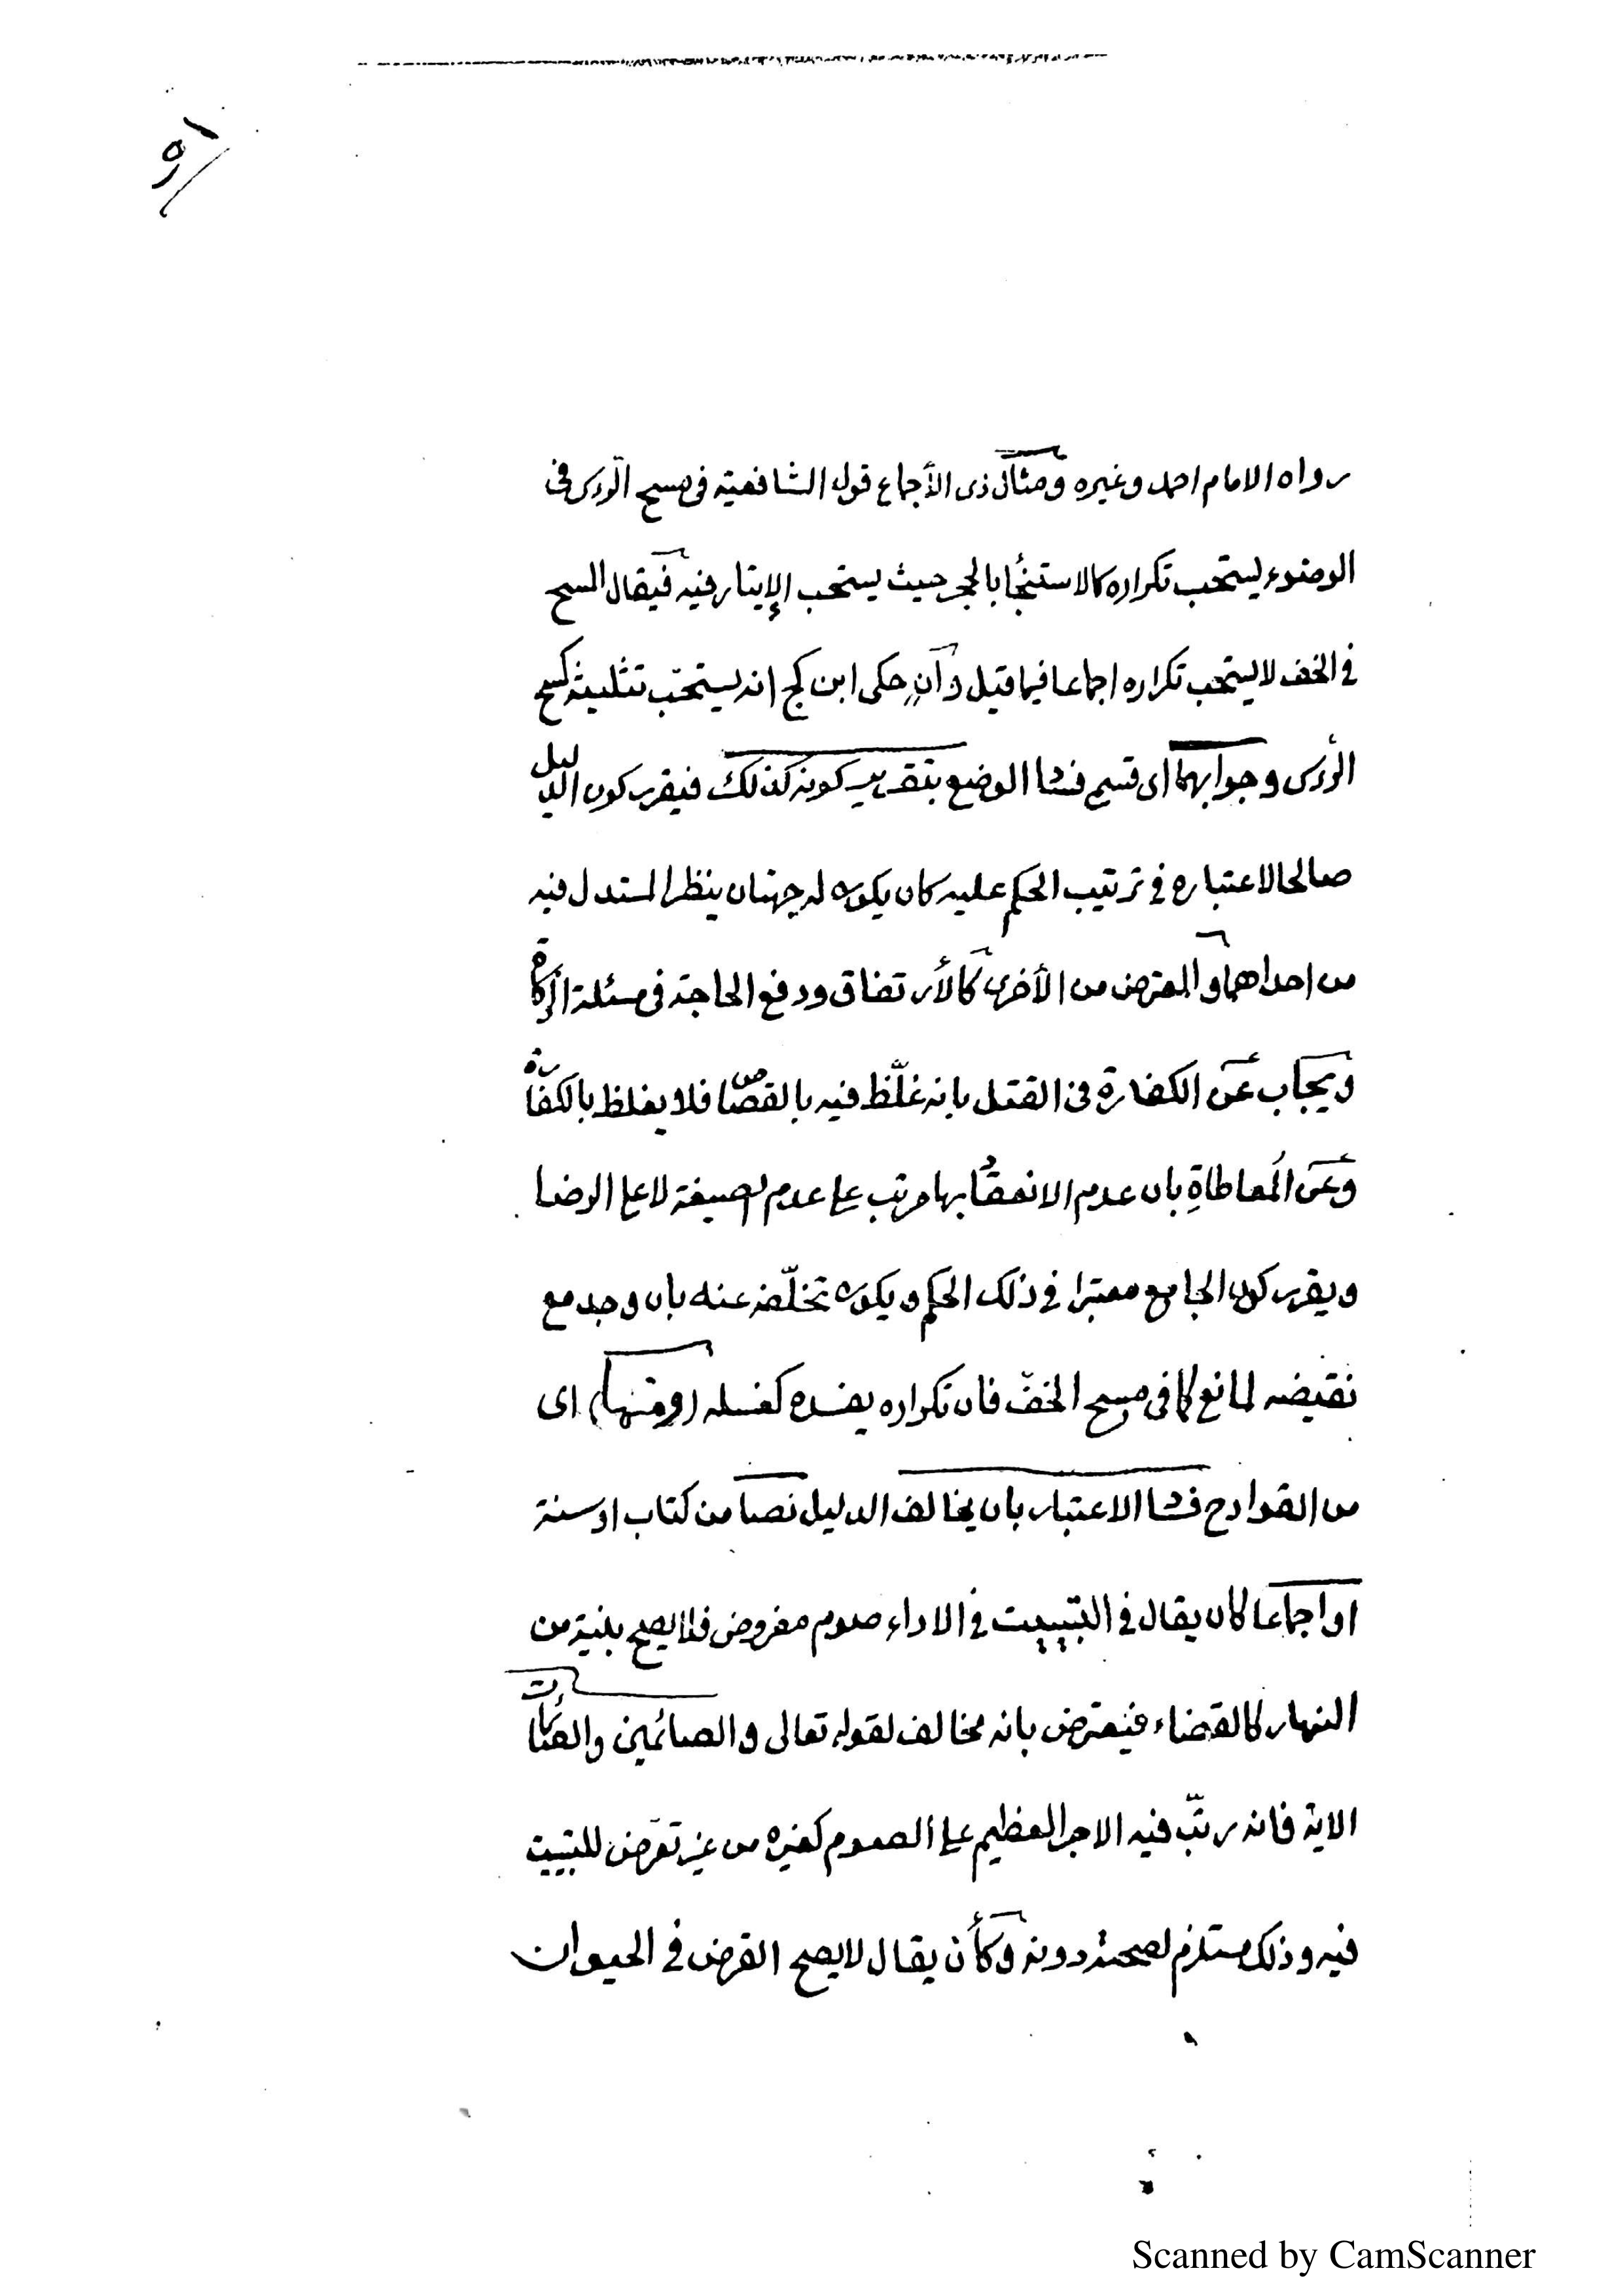 رواه الامام احمد وغيره ومثال ذى الأجماع قول الشافعية فى مسح الرٔس فى
الوضوء يستحب تكراره كالاستنجٔا بالحجر حيث يستحب الإيتار فيه فيقال المسح
فى الخف لا يستحب تكراره اجماعا فيما قيل وان حكى ابن كج انه يستحب تثليثه كمسح
الرٔس وجوابهما اى قسيم فسا الوضع بتقرير كونه كذلك فيقرر كون الدليل
صالحا لاعتباره فى ترتيب الحكم عليه كان يكون له جهتان ينظر المستدل فيه
من احداهما والمعترض من الأخرى كالأرتفاق ودفع الحاجة فى مسئلة الزكاة
ويجاب عن الكفارة فى القتل بانه غلّظ فيه بالقصاص فلا يغلظ بالكفارة
وعن المُعاطاةِ بان عدم الانعقاد بها مرتب على عدم الصيغة لا على الرضا
ويقرر كون الجامع معتبرا فى ذلك الحكم ويكون تخلّفه عنه بان وجد مع
نقيضه لمانع كما فى مسح الخفّ فان تكراره يفسده كغسله (ومنها) اى
من القوادح فسا الاعتبار بان يخالف الدليل نصا من كتاب او سنة
او اجماعا كان يقال فى التبييت فى الاداء صوم مفروض فلا يصح بنية من
النهار كالقضاء فيعترض بانه مخالف لقوله تعالى والصائمين والصائمات
الاية فانه رتّب فيه الاجر العظيم على الصوم كغيره من غير تعرّض للتبييت
فيه وذلك مستلزم لصحته دونه وكأن يقال لا يصح القرض فى الحيوان
Scanned by CamScanner